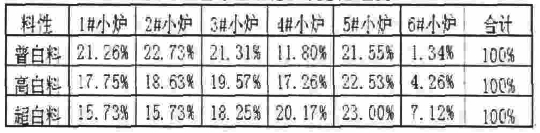 料性 1#小炉 2#小炉 3#小炉 4#小炉 5#小炉 6#小炉 合计
普白料 21.26% 22.73% 21.31% 11.80% 21.55% 1.34% 100%
高白料 17.75% 18.63% 19.57% 17.26% 22.53% 4.26% 100%
超白料 15.73% 15.73% 18.25% 20.17% 23.00% 7.12% 100%